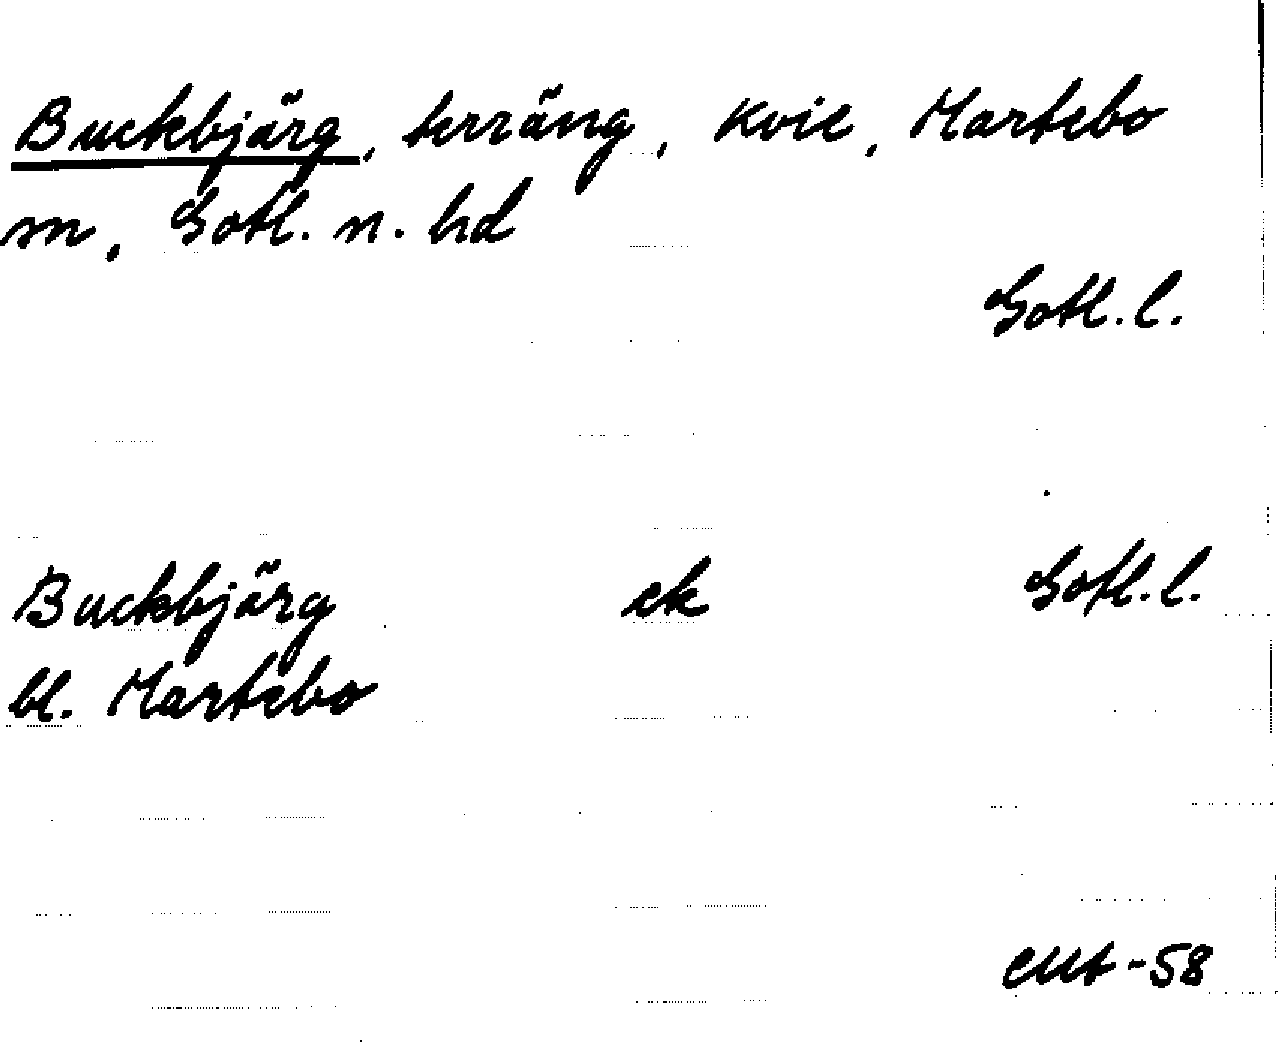 Buckbjärg, terräng, Kvie, Martebo
m, Gotl. n. hd
Gotl. l.
Buckbjärg ek Gotl. l.
bl. Martebo
-58